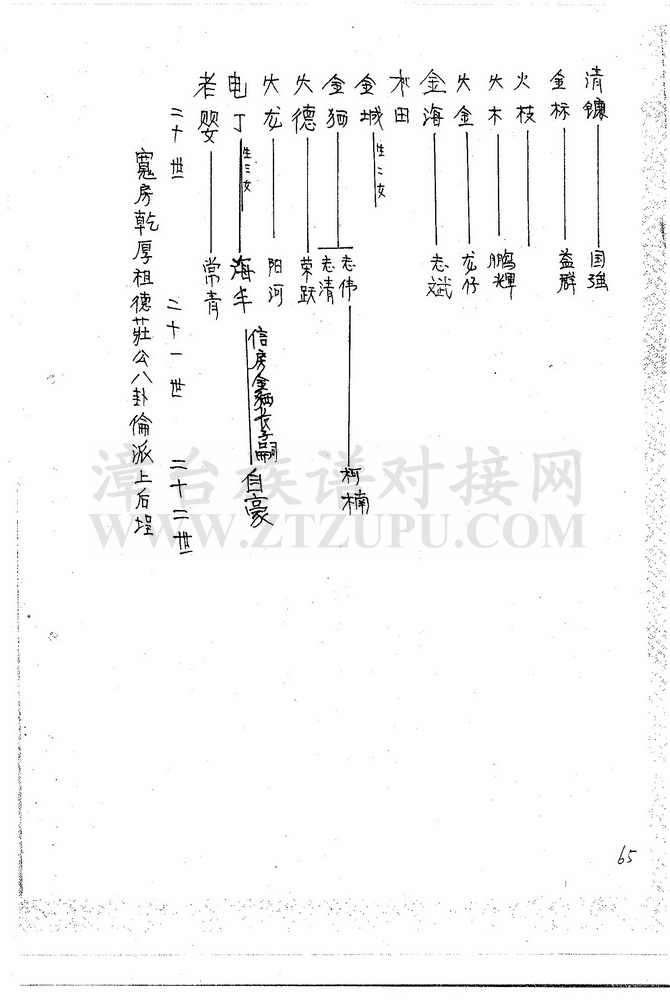 清镰
国强
金标
益群
火枝
火木
鹏輝
火金
龙仔
金海
志斌
木田
金城
生二女
金猫
志伟
志清
柯楠
火德
荣跃
火龙
阳河
电丁
生三女
海丰
信房金猫长子嗣
自豪
老婴
常青
二十世
二十一世
二十二世
寬房乾厚祖德莊公八卦倫派上后埕
漳台族谱对接网
WWW.ZTZUPU.COM
65